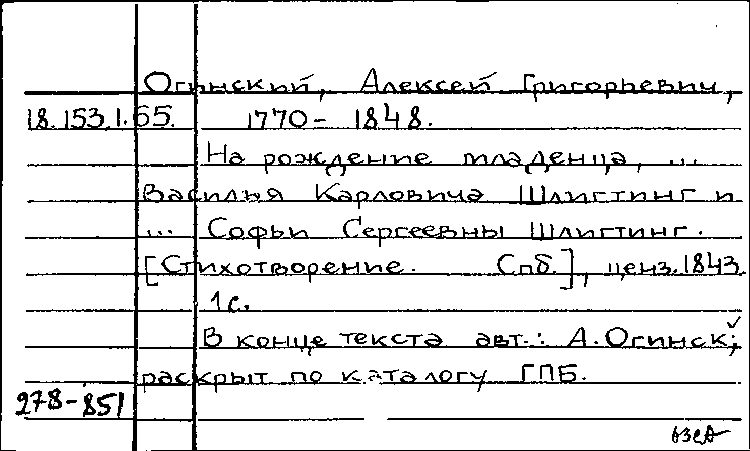 Огинский, Алексей Григорьевич,
18.153.1.65. 1770- 1848.
На рождение младенца, ...
Василья Карловича Шлиптинг и
... Софьи Сергеевны Шлиптинг.
[Стихотворение. Спб.], ценз.1843.
1с.
В конце текста авт.: А.Огинск;
раскрыт по каталогу ГПБ.
278-851